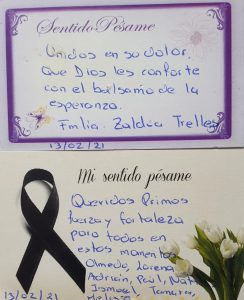 Sentido Pésame
Unidos en su dolor,
Que Dios les conforte
con el bálsamo de la
esperanza.
Fmlia. Zaldúa Trelles
13/02/21
Mi sentido pésame
Queridos Primos
fuerza y fortaleza
para todos en
estos momentos
Olmedo, Lorena
Adrián, Paúl,
Ismael, Tamara,
13/02/21